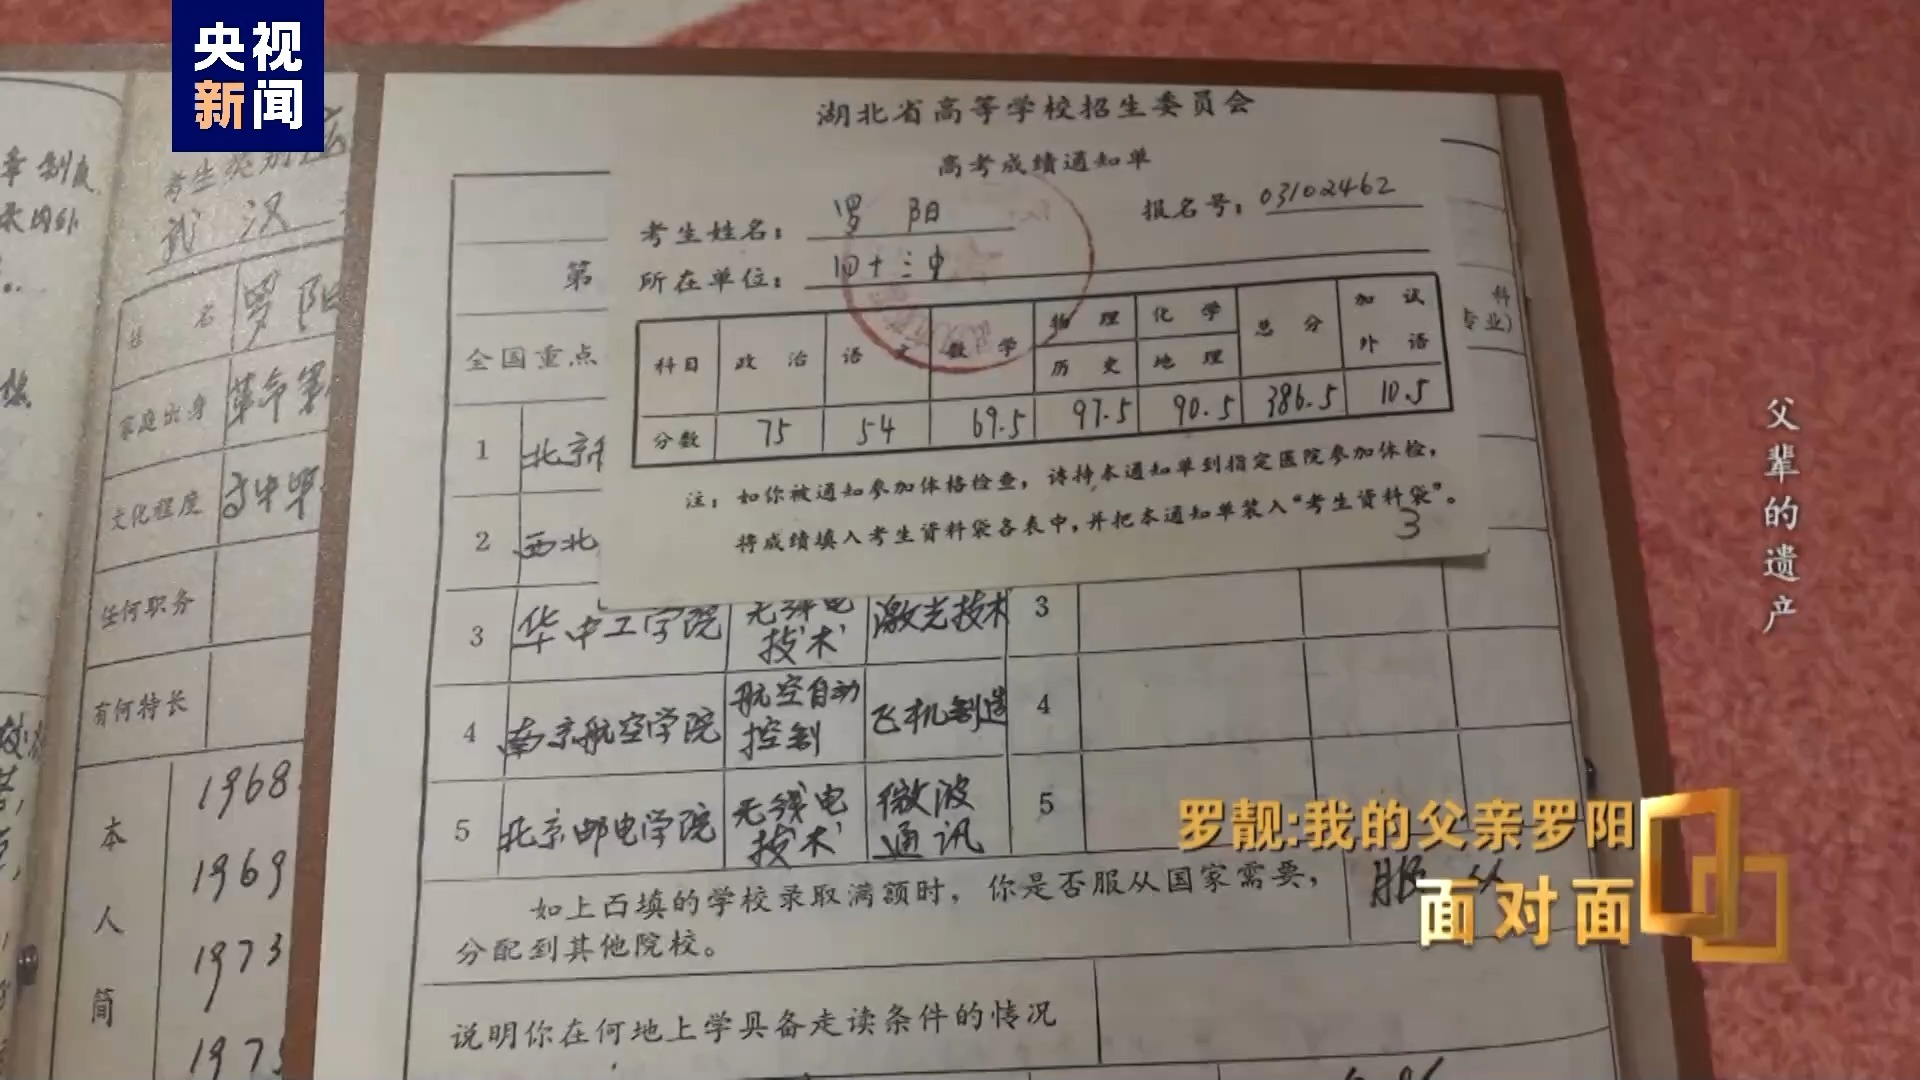 央视
新闻
湖北省高等学校招生委员会
高考成绩通知单
考生姓名：罗阳
报名号：03102462
所在单位：四十三中
科目 政治 语文 数学 物理 化学 总分 加试
历史 地理 外语
分数 75 54 69.5 97.5 90.5 386.5 10.5
注：如你被通知参加体格检查，请持本通知单到指定医院参加体检，
将成绩填入考生资料袋各表中，并把本通知单装入“考生资料袋”。
3
考生类别
武汉
姓名 罗阳
家庭出身 革命
文化程度 高中毕
任何职务
有何特长
本人简
1968
1969
1973
197
第
科
专业)
全国重点
1 北京
2 西北
3 华中工学院 无线电技术 激光技术 3
4 南京航空学院 航空自动控制 飞机制造 4
5 北京邮电学院 无线电技术 微波通讯 5
如上百填的学校录取满额时，你是否服从国家需要，
分配到其他院校。
服从
说明你在何地上学具备走读条件的情况
父辈的遗产
罗靓:我的父亲罗阳
面对面